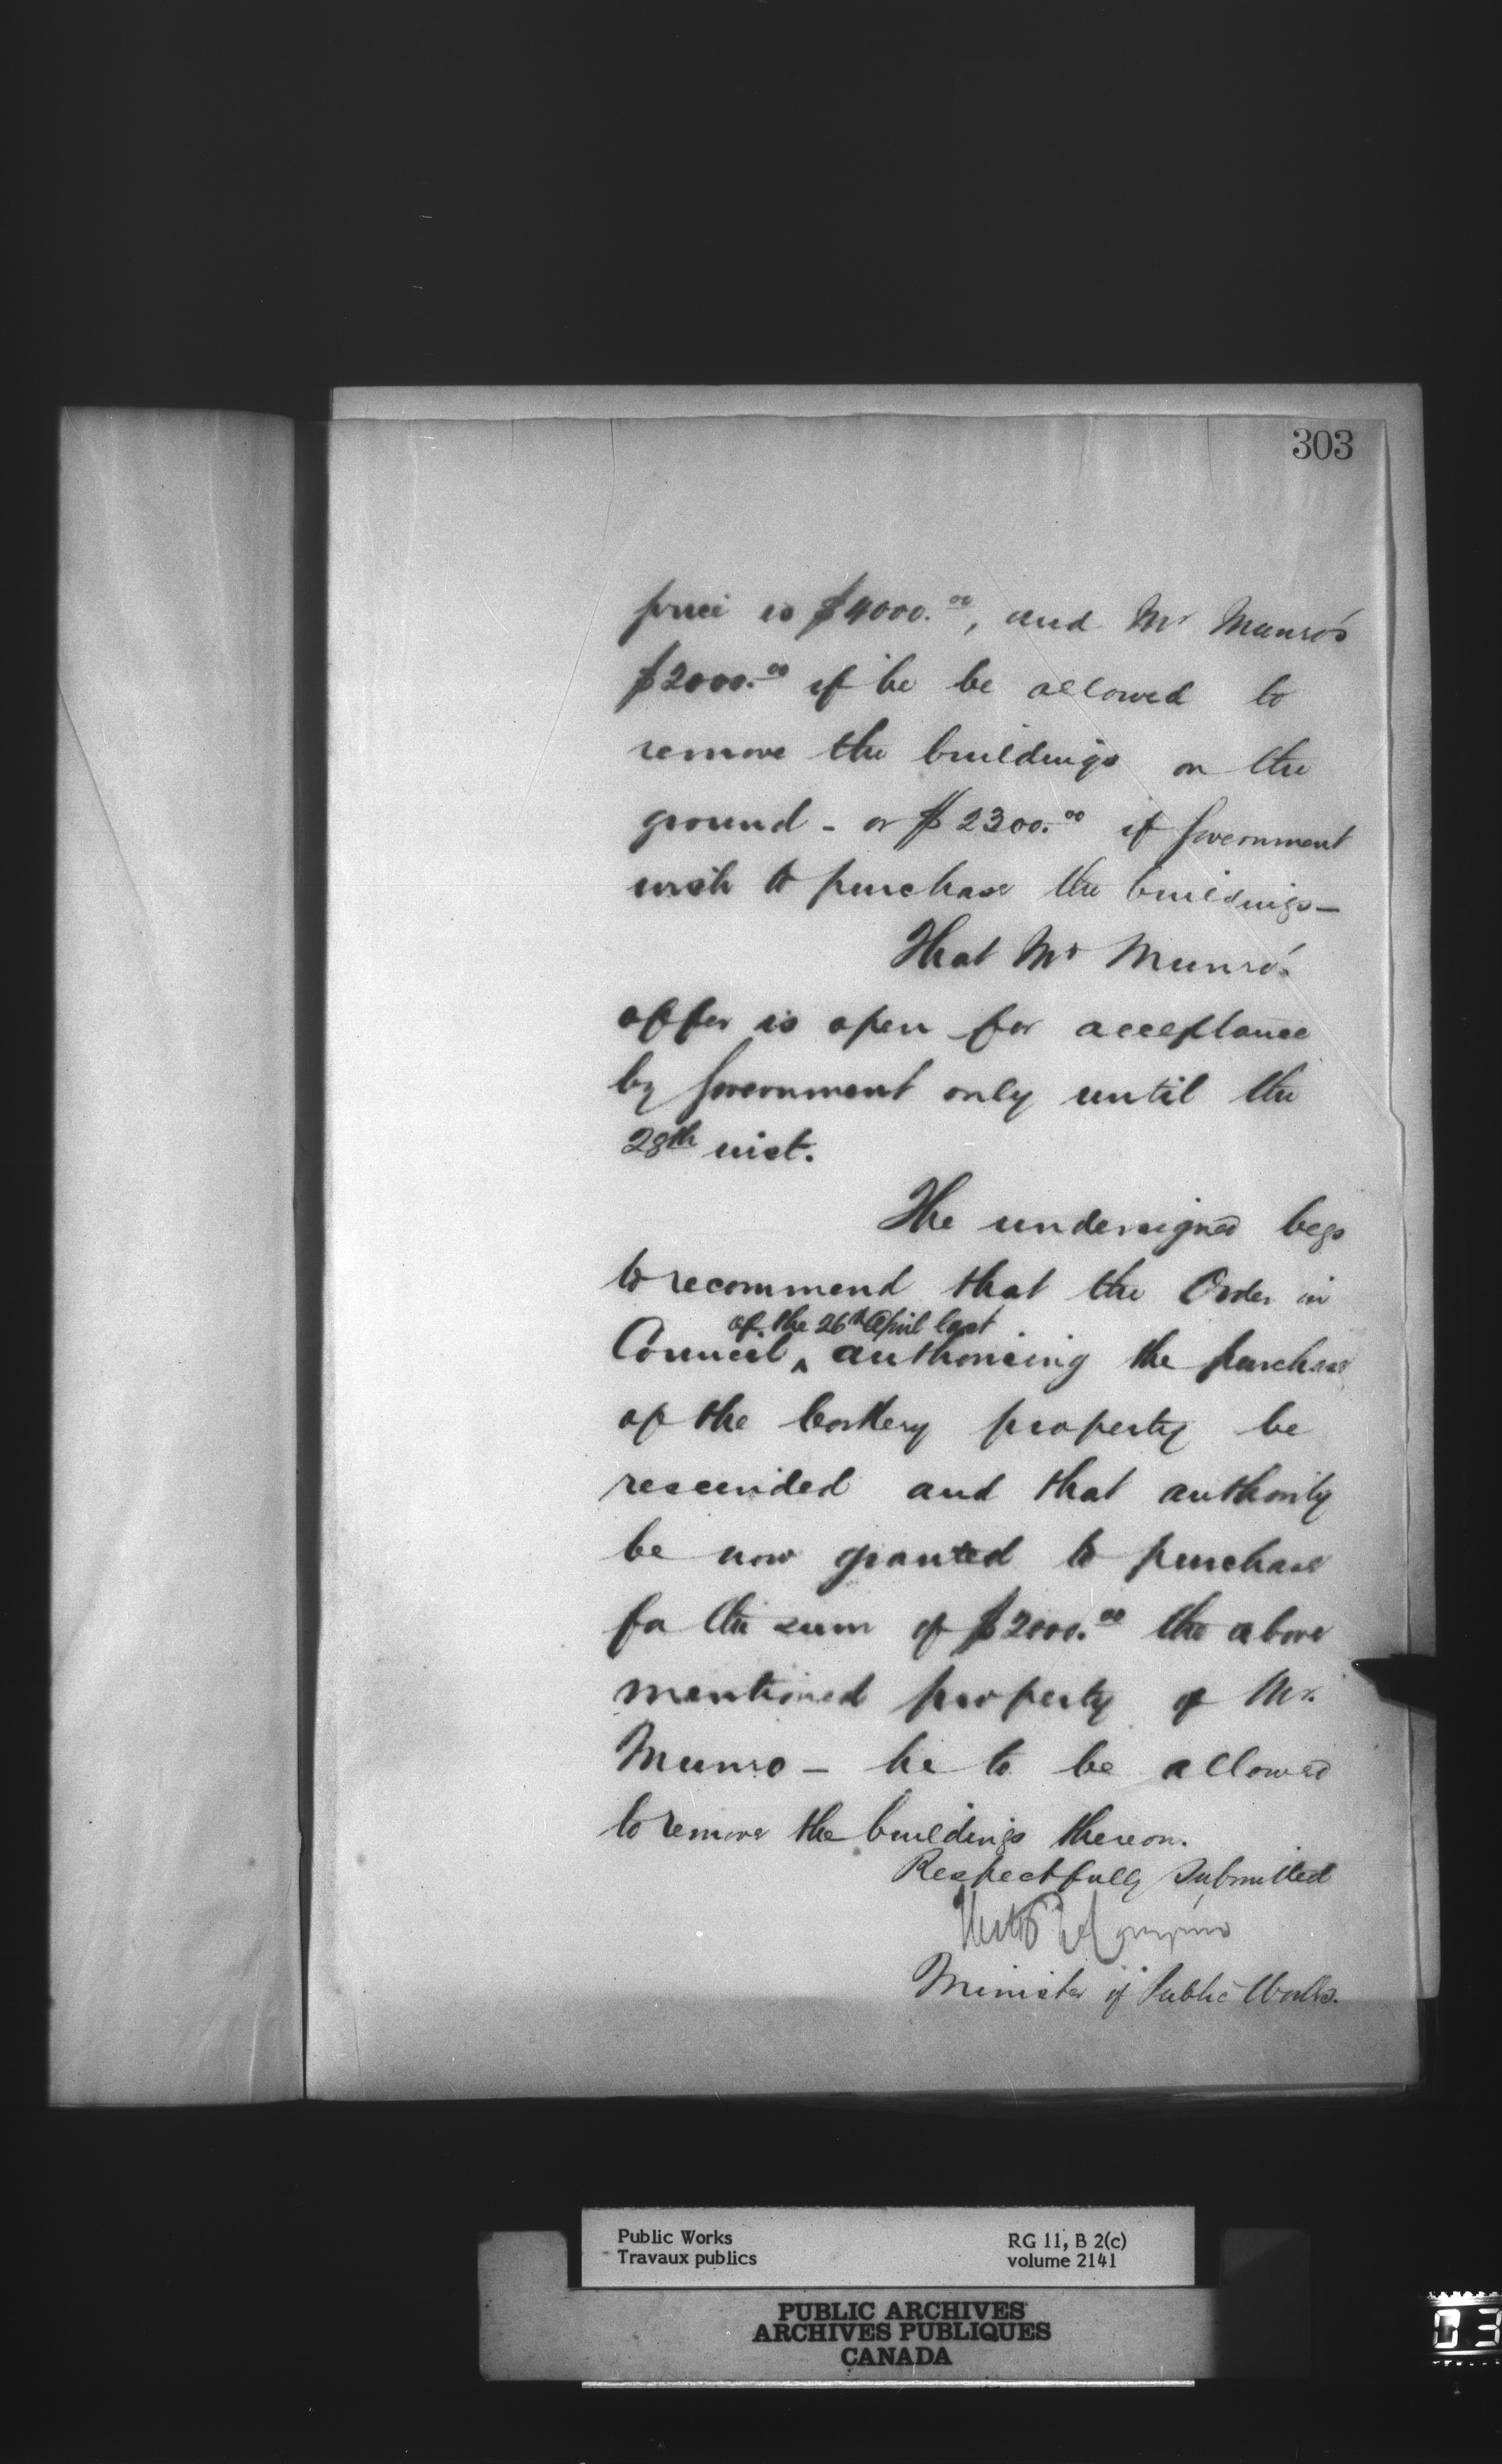 303
price is $4000.00, and Mr Munro's
$2000.00 if he be allowed to
remove the buildings on the
ground - or $2300.00 if Government
wish to purchase the buildings—
That Mr Munro's
offer is open for acceptance
by Government only until the
28th inst.
The undersigned begs
to recommend that the Order in
of the 26th April last
Council ^ authorising the purchase
of the property be
rescinded and that authority
be now granted to purchase
for the sum of $2000.00 the above
mentioned property of Mr.
Munro — he to be allowed
to remove the buildings thereon.
Respectfully Submitted
Minister of Public Works.
Public Works
Travaux publics
RG 11, B 2(c)
volume 2141
PUBLIC ARCHIVES
ARCHIVES PUBLIQUES
CANADA
03